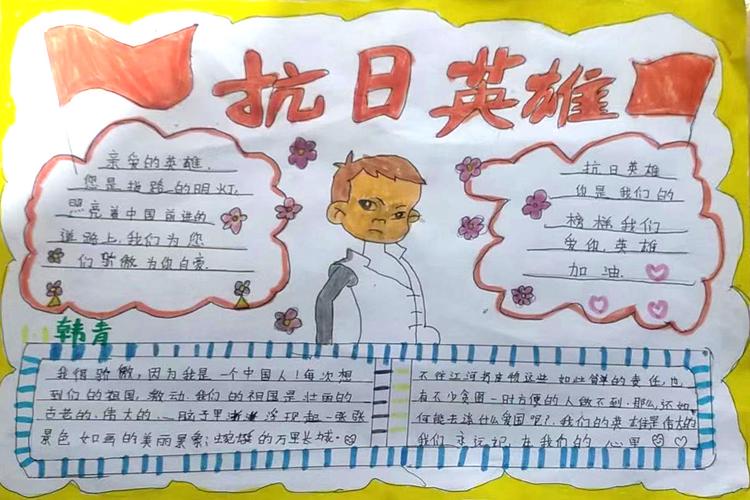 抗日英雄
亲爱的英雄.
您是指路的明灯.
照亮着中国前进的
道路上.我们为您
们骄傲为你自豪.
抗日英雄
你是我们的
榜样我们
爱你英雄
加油.
韩青
我很骄傲,因为我是一个中国人!每次想
到们的祖国,激动.我们的祖国是壮丽的
古老的.伟大的.一脑子里浮现起一张张
景色如画的美丽景象:蜿蜒的万里长城.
不往江河扔生物这些如此简单的责任,也
有不少贪图一时方便的人做不到.那么,还如
何能去谈什么爱国呢?.我们的英雄是伟大的
我们永远记在我们的心里